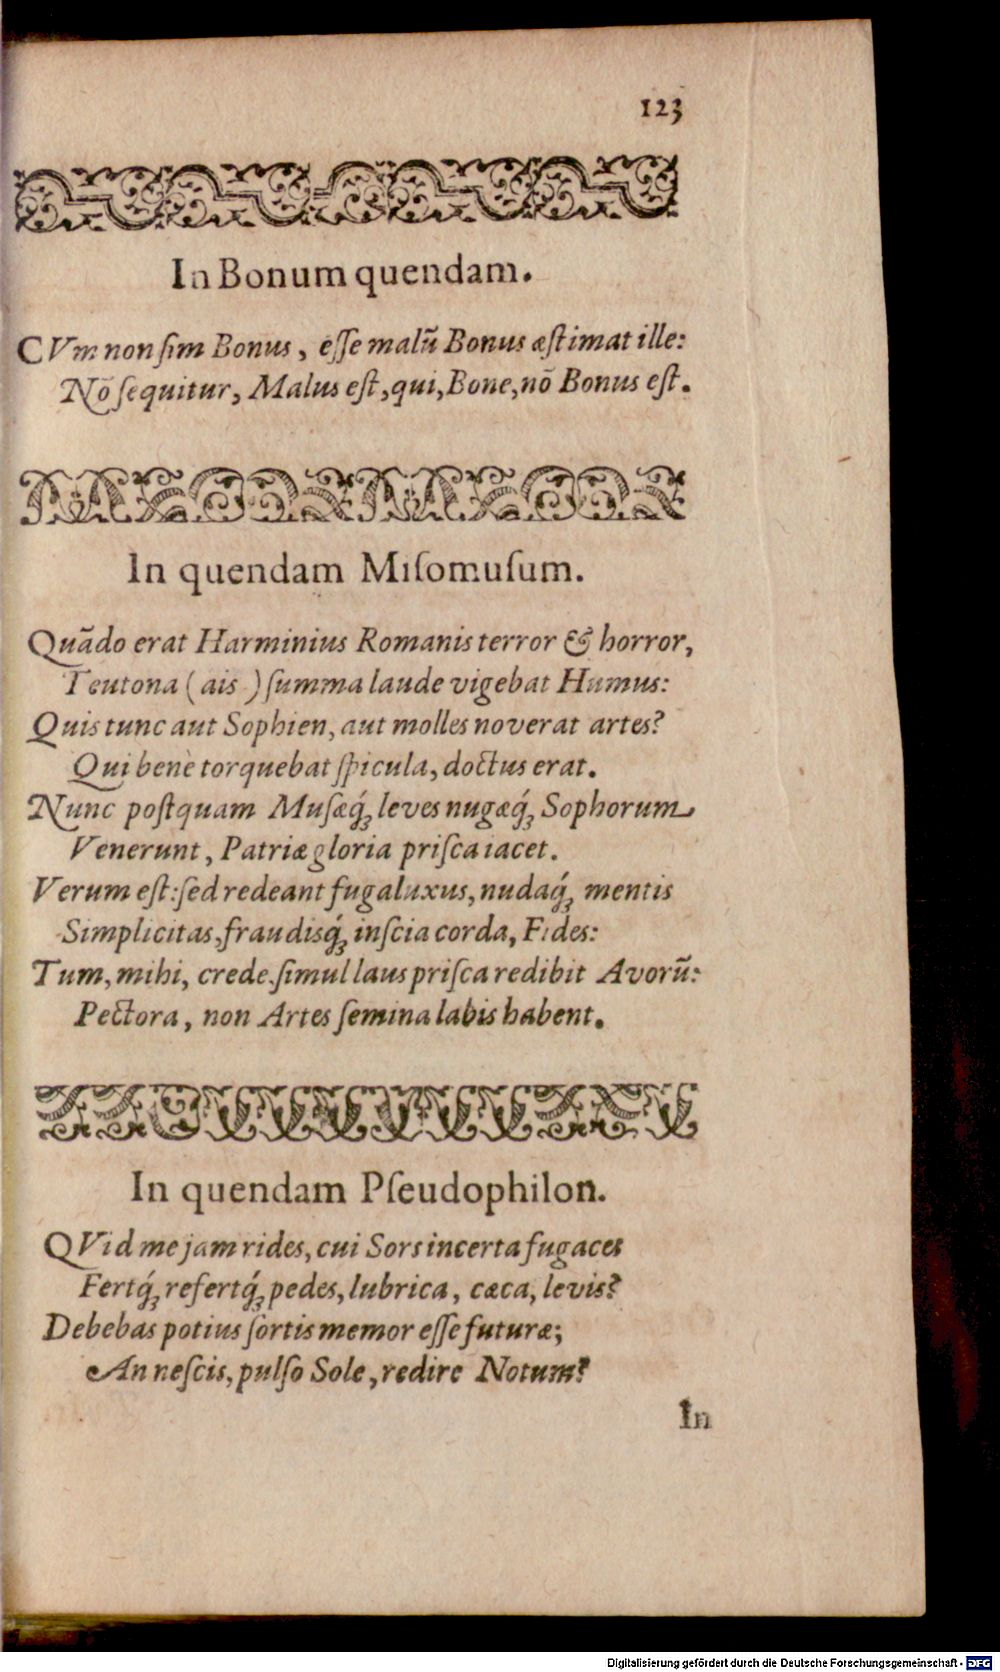 123
In Bonum quendam.
CVm non ſim Bonus, eſſe malũ Bonus æſtimat ille:
Nõ ſequitur, Malus eſt, qui, Bone, nõ Bonus eſt.
In quendam Miſomuſum.
Quãdo erat Harminius Romanis terror & horror,
Teutona (ais) ſumma laude vigebat Humus:
Quis tunc aut Sophien, aut molles noverat artes?
Qui benè torquebat ſpicula, doctus erat.
Nunc poſtquam Muſæq́ꝫ leves nugæq́ꝫ Sophorum
Venerunt, Patriæ gloria priſca iacet.
Verum eſt: ſed redeant fuga luxus, nudaq́ꝫ mentis
Simplicitas, fraudisq́ꝫ inſcia corda, Fides:
Tum, mihi, crede. ſimul laus priſca redibit Avorũ:
Pectora, non Artes ſemina labis habent.
In quendam Pſeudophilon.
QVid me jam rides, cui Sors incerta fugaces
Fertq́ꝫ refertq́ꝫ pedes, lubrica, cæca, levis?
Debebas potius ſortis memor eſſe futuræ;
An neſcis, pulſo Sole, redire Notum?
In
Digitalisierung gefördert durch die Deutsche Forschungsgemeinschaft - DFG